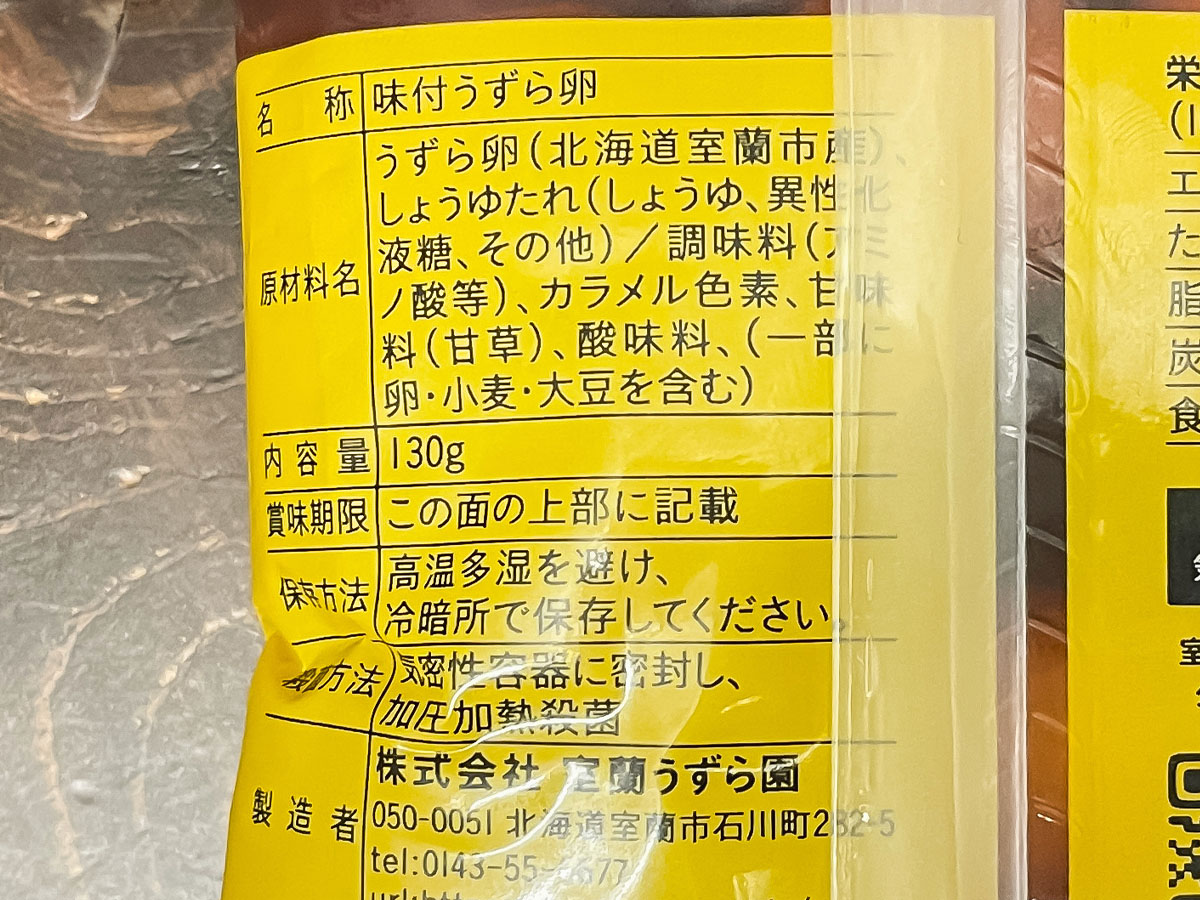 名称 味付うずら卵
原材料名
うずら卵(北海道室蘭市産)、
しょうゆたれ(しょうゆ、異性化
液糖、その他)/調味料(アミ
ノ酸等)、カラメル色素、甘味
料(甘草)、酸味料、(一部に
卵・小麦・大豆を含む)
内容量 130g
賞味期限 この面の上部に記載
保存方法 高温多湿を避け、
冷暗所で保存してください。
殺菌方法 気密性容器に密封し、
加圧加熱殺菌
製造者
株式会社 室蘭うずら園
050-0051 北海道室蘭市石川町282-5
tel:0143-55-
栄
エ
た
脂
炭
食
室